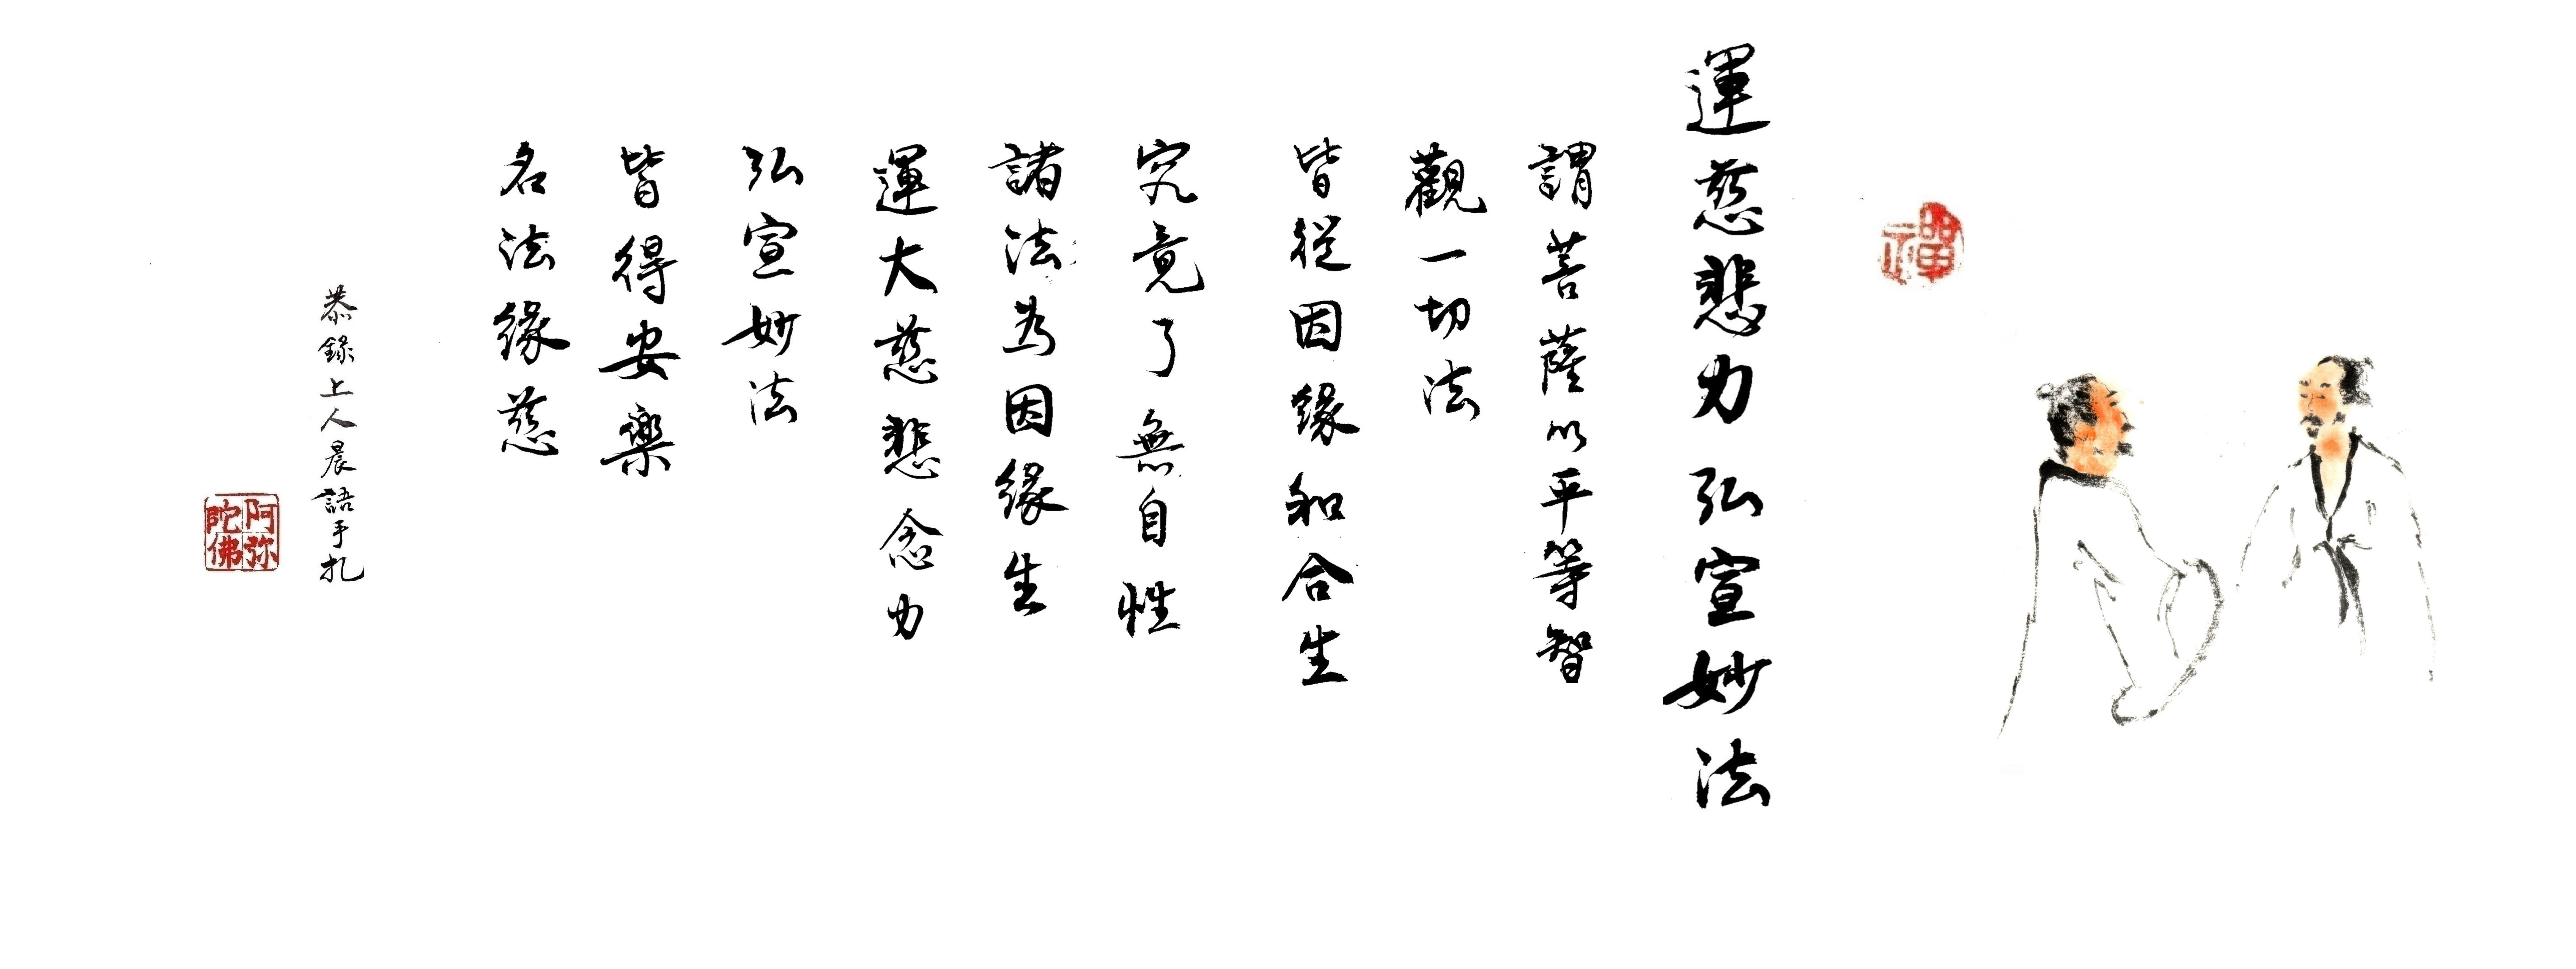 禪
運慈悲力弘宣妙法
謂菩薩以平等智
觀一切法
皆從因緣和合生
究竟了無自性
諸法為因緣生
運大慈悲念力
弘宣妙法
皆得安樂
名法緣慈
恭錄上人晨語手札
阿弥
陀佛